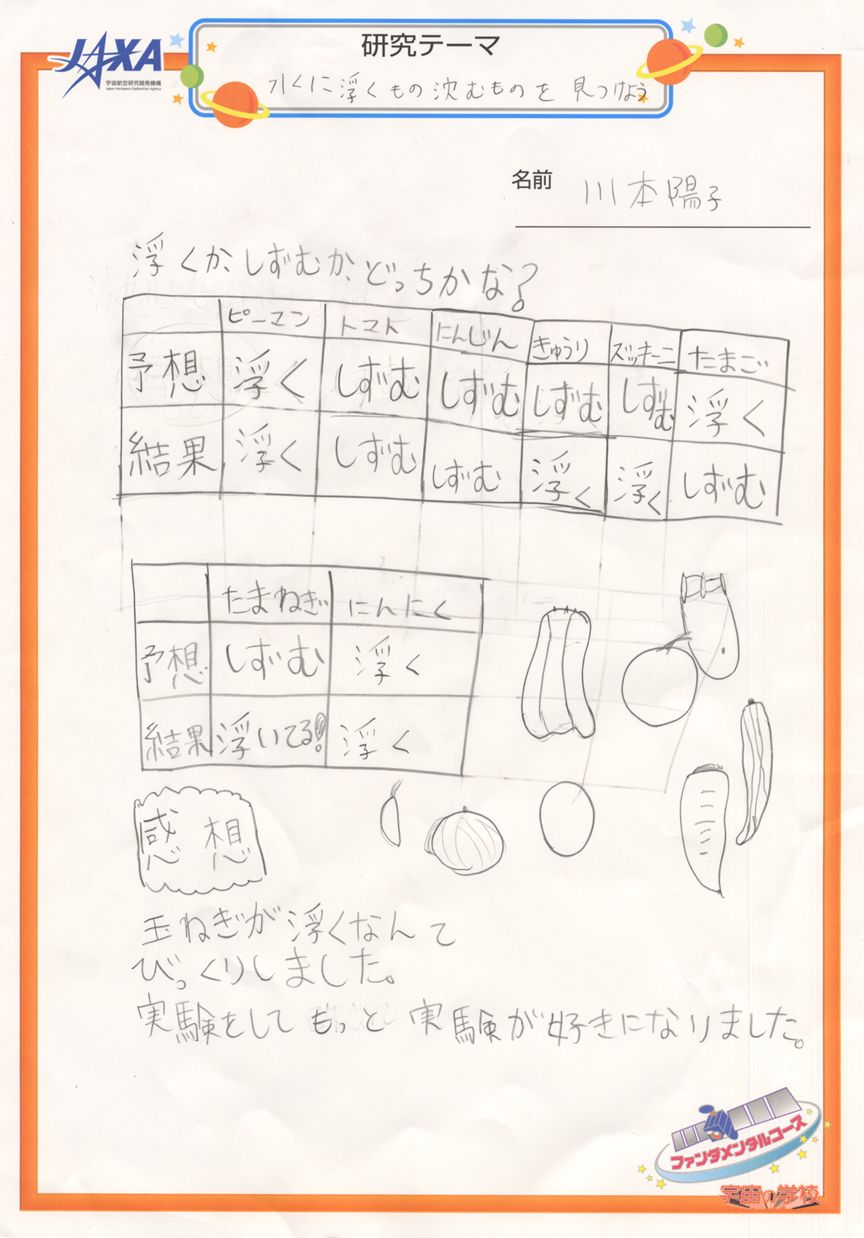 JAXA
宇宙航空研究開発機構
Japan Aerospace Exploration Agency
研究テーマ
水に浮くもの沈むものを見つけよう
名前 川本陽子
浮くか、しずむか、どっちかな?
ピーマン トマト にんじん きゅうり ズッキーニ たまご
予想 浮く しずむ しずむ しずむ しずむ 浮く
結果 浮く しずむ しずむ 浮く 浮く しずむ
たまねぎ にんにく
予想 しずむ 浮く
結果 浮いてる! 浮く
感想
玉ねぎが浮くなんて
びっくりしました。
実験をしてもっと実験が好きになりました。
ファンダメンタルコース
宇宙の学校